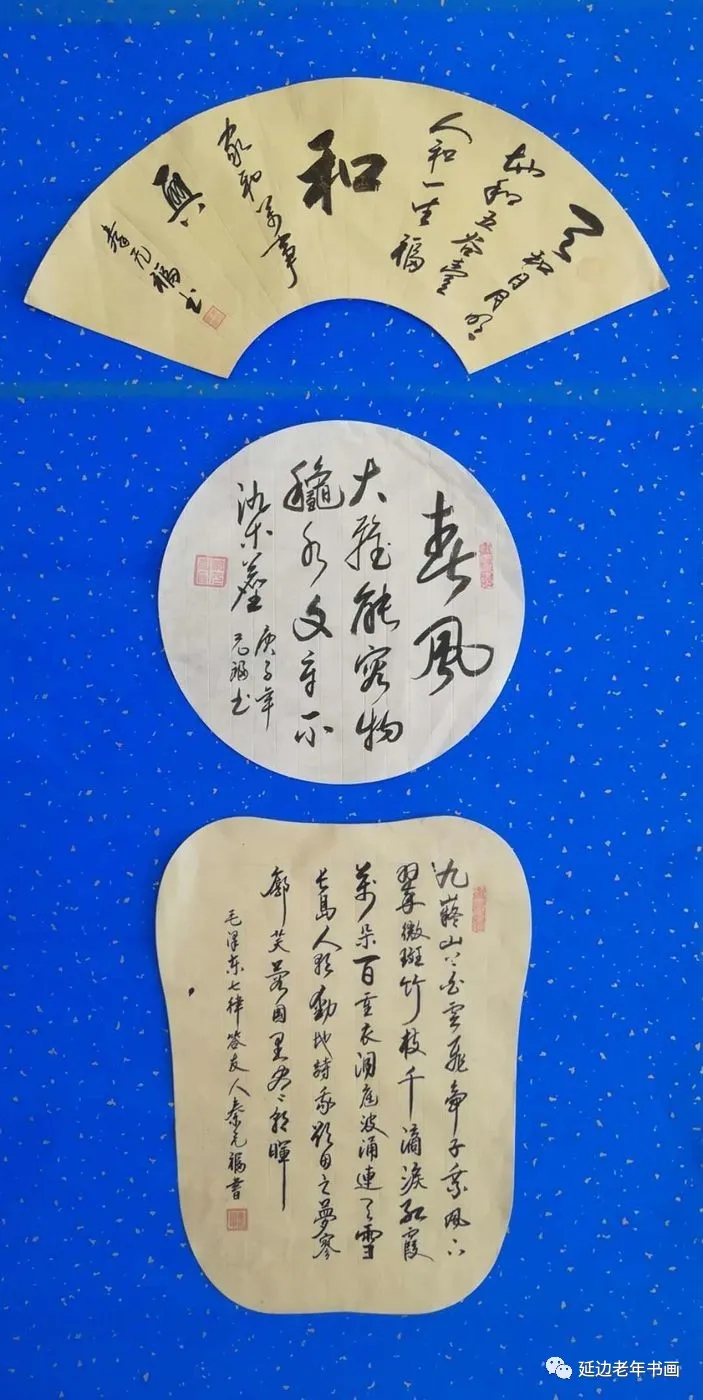 天
和日月明
地和五谷豐
人和一生福
和
家和万事
興
秦元福书
春風
大雅能容物
龝水文章不
染塵
庚子年
元福书
九嶷山上白雲飛帝子乘風下
翠微斑竹枝千滴淚紅霞
萬朵百重衣洞庭波涌連天雪
长島人歌動地詩我欲因之夢寥
廓芙蓉国里尽朝暉
毛泽东七律答友人秦元福書
延边老年书画